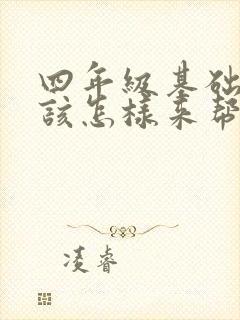 四年级基础
该怎样来帮
凌睿